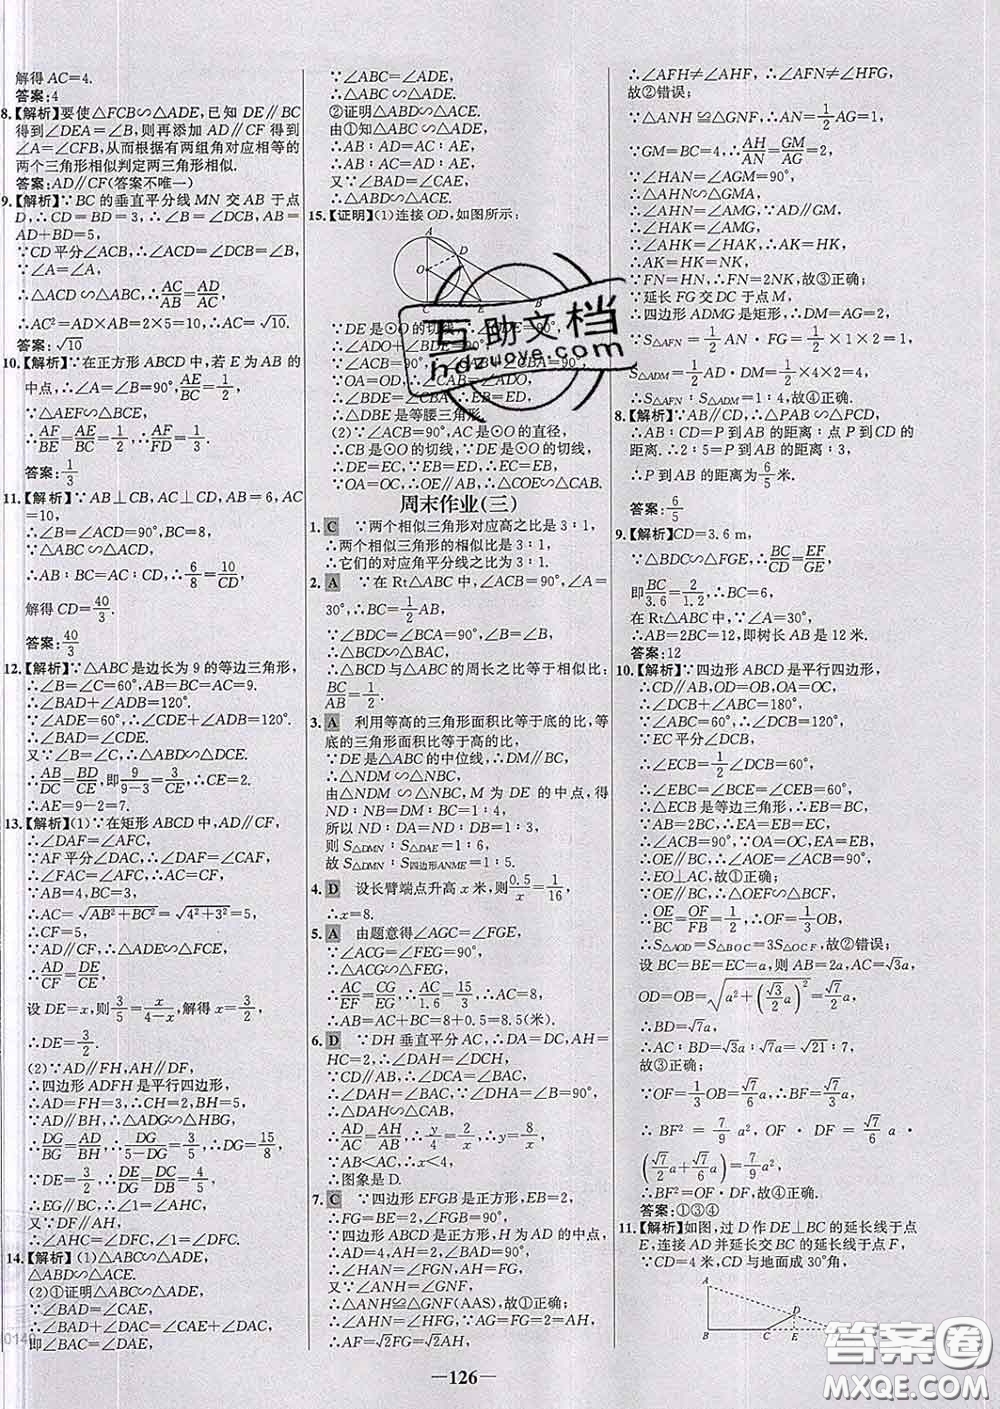 解得 AC=4.
答案:4
8.【解析】要使△FCB∽△ADE,已知 DE∥BC
得到∠DEA=∠B,则再添加 AD∥CF 得到
∠A=∠FCB,从而根据有两组角对应相等的
两个三角形相似判定两三角形相似.
答案:AD∥CF(答案不唯一)
9.【解析】∵BC 的垂直平分线 MN 交 AB 于点
D,∴CD=BD=3,∴∠B=∠DCB,AB=
AD+BD=5,
∵CD 平分∠ACB,∴∠ACD=∠DCB=∠B,
∵∠A=∠A,
∴△ACD∽△ABC,∴AC/AB=AD/AC,
∴AC²=AD×AB=2×5=10,∴AC=√10.
答案:√10
10.【解析】∵在正方形 ABCD 中,若 E 为 AB 的
中点,∴∠A=∠B=90°,AE/BC=1/2,
∵△AEF∽△BCE,
∴AF/BE=AE/BC=1/2,∴AF/FD=1/3.
答案:1/3
11.【解析】∵AB⊥CB,AC⊥CD,AB=6,AC
=10,
∴∠B=∠ACD=90°,BC=8,
∵△ABC∽△ACD,
∴AB∶BC=AC∶CD,∴6/8=10/CD,
解得 CD=40/3.
答案:40/3
12.【解析】∵△ABC 是边长为 9 的等边三角形,
∴∠B=∠C=60°,AB=BC=AC=9.
∴∠BAD+∠ADB=120°.
∵∠ADE=60°,∴∠CDE+∠ADB=120°.
∴∠BAD=∠CDE.
又∵∠B=∠C,∴△ABD∽△DCE.
∴AB/DC=BD/CE,即9/(9−3)=3/CE,∴CE=2.
∴AE=9−2=7.
13.【解析】(1)∵在矩形 ABCD 中,AD∥CF,
∴∠DAF=∠AFC,
∵AF 平分∠DAC,∴∠DAF=∠CAF,
∴∠FAC=∠AFC,∴AC=CF,
∵AB=4,BC=3,
∴AC=√(AB²+BC²)=√(4²+3²)=5,
∴CF=5,
∵AD∥CF,∴△ADE∽△FCE,
∴AD/CF=DE/CE,
设 DE=x,则3/5=x/(4−x),解得 x=3/2,
∴DE=3/2.
(2)∵AD∥FH,AH∥DF,
∴四边形 ADFH 是平行四边形,
∴AD=FH=3,∴CH=2,BH=5,
∵AD∥BH,∴△ADG∽△HBG,
∴DG/BG=AD/BH,∴DG/(5−DG)=3/5,∴DG=15/8,
∵DE=3/2,∴DE/DC=DG/DB,
∴EG∥BC,∴∠1=∠AHC,
又∵DF∥AH,
∴∠AHC=∠DFC,∴∠1=∠DFC.
14.【解析】(1)△ABC∽△ADE,
△ABD∽△ACE.
(2)①证明△ABC∽△ADE,
∵∠BAD=∠CAE,
∴∠BAD+∠DAC=∠CAE+∠DAC,
即∠BAC=∠DAE,
∵∠ABC=∠ADE,
∴△ABC∽△ADE.
②证明△ABD∽△ACE,
由①知△ABC∽△ADE,
∴AB∶AD=AC∶AE,
∴AB∶AC=AD∶AE,
又∵∠BAD=∠CAE,
∴△ABD∽△ACE.
15.【证明】(1)连接 OD,如图所示:
A
D
O
C E B
∵DE 是⊙O 的切线,
∴∠ADO+∠BDE=90°,
∵∠ACB=90°,∴∠CAB+∠CBA=90°,
∵OA=OD,∴∠CAB=∠ADO,
∴∠BDE=∠CBA,∴EB=ED,
∴△DBE 是等腰三角形.
(2)∵∠ACB=90°,AC 是⊙O 的直径,
∴CB 是⊙O 的切线,∵DE 是⊙O 的切线,
∴DE=EC,∵EB=ED,∴EC=EB,
∵OA=OC,∴OE∥AB.
周末作业(三)
1. C ∵两个相似三角形对应高之比是 3∶1,
∴两个相似三角形的相似比是 3∶1,
∴它们的对应角平分线之比为 3∶1.
2. A ∵在 Rt△ABC 中,∠ACB=90°,∠A=
30°,∴BC=1/2AB,
∵∠BDC=∠BCA=90°,∠B=∠B,
∴△BCD∽△BAC,
∴△BCD 与△ABC 的周长之比等于相似比:
BC/AB=1/2.
3. A 利用等高的三角形面积比等于底的比,等
底的三角形面积比等于高的比,
∵DE 是△ABC 的中位线,∴DM∥BC,
∴△NDM∽△NBC,
由△NDM∽△NBC,M 为 DE 的中点,得
ND∶NB=DM∶BC=1∶4,
所以 ND∶DA=ND∶DB=1∶3,
则 S△DMN∶S△ADE=1∶6.
故 S△DMN∶S四边形ANME=1∶5.
4. D 设长臂端点升高 x 米,则0.5/x=1/16,
∴x=8.
5. A 由题意得∠AGC=∠FGE,
∵∠ACG=∠FEG=90°,
∴△ACG∽△FEG,
∴AC/EF=CG/EG,∴AC/1.6=15/3,∴AC=8,
∴AB=AC+BC=8+0.5=8.5(米).
6. D ∵DH 垂直平分 AC,∴DA=DC,AH=
HC=2,∴∠DAH=∠DCH,
∵CD∥AB,∴∠DCA=∠BAC,
∴∠DAH=∠BAC,∵∠DHA=∠B=90°,
∴△DAH∽△CAB,
∴AD/AC=AH/AB,∴y/4=2/x,∴y=8/x,
∵AB<AC,∴x<4,
∴图象是 D.
7. C ∵四边形 EFGB 是正方形,EB=2,
∴FG=BE=2,∠FGB=90°,
∵四边形 ABCD 是正方形,H 为 AD 的中点,
∴AD=4,AH=2,∠BAD=90°,
∴∠HAN=∠FGN,AH=FG,
∵∠ANH=∠GNF,
∴△ANH≌△GNF(AAS),故①正确;
∴∠AHN=∠HFG,∵AG=FG=2=AH,
∴AF=√2FG=√2AH,
∴∠AFH≠∠AHF,∴∠AFN≠∠HFG,
故②错误;
∵△ANH≌△GNF,∴AN=1/2AG=1,
∵GM=BC=4,∴AH/AN=GM/AG=2,
∵∠HAN=∠AGM=90°,
∴△AHN∽△GMA,
∴∠AHN=∠AMG,∵AD∥GM,
∴∠HAK=∠AMG,
∴∠AHK=∠HAK,∴AK=HK,
∴AK=HK=NK,
∵FN=HN,∴FN=2NK,故③正确;
∵延长 FG 交 DC 于点 M,
∴四边形 ADMG 是矩形,∴DM=AG=2,
∵S△AFN=1/2AN·FG=1/2×1×2=1,
S△ADM=1/2AD·DM=1/2×4×2=4,
∴S△AFN∶S△ADM=1∶4,故④正确.
8.【解析】∵AB∥CD,∴△PAB∽△PCD,
∴AB∶CD=P 到 AB 的距离∶点 P 到 CD 的
距离.∴2∶5=P 到 AB 的距离∶3,
∴P 到 AB 的距离为6/5米.
答案:6/5
9.【解析】CD=3.6 m,
∵△BDC∽△FGE,∴BC/CD=EF/GE,
即BC/3.6=2/1.2,∴BC=6,
在 Rt△ABC 中,∵∠A=30°,
∴AB=2BC=12,即树长 AB 是 12 米.
答案:12
10.【解析】∵四边形 ABCD 是平行四边形,
∴CD∥AB,OD=OB,OA=OC,
∴∠DCB+∠ABC=180°,
∵∠ABC=60°,∴∠DCB=120°,
∵EC 平分∠DCB,
∴∠ECB=1/2∠DCB=60°,
∴∠EBC=∠BCE=∠CEB=60°,
∴△ECB 是等边三角形,∴EB=BC,
∵AB=2BC,∴EA=EB=EC,
∴∠ACB=90°,∵OA=OC,EA=EB,
∴OE∥BC,∴∠AOE=∠ACB=90°,
∴EO⊥AC,故①正确;
∵OE∥BC,∴△OEF∽△BCF,
∴OE/BC=OF/FB=1/2,∴OF=1/3OB,
∴S△AOD=S△BOC=3S△OCF,故②错误;
设 BC=BE=EC=a,则 AB=2a,AC=√3a,
OD=OB=√(a²+(√3/2a)²)=√7/2a,
∴BD=√7a,
∴AC∶BD=√3a∶√7a=√21∶7,
故③正确;
∵OF=1/3OB=√7/6a,∴BF=√7/3a,
∴BF²=7/9a²,OF·DF=√7/6a·
(√7/2a+√7/6a)=7/9a²,
∴BF²=OF·DF,故④正确.
答案:①③④
11.【解析】如图,过 D 作 DE⊥BC 的延长线于点
E,连接 AD 并延长交 BC 的延长线于点 F,
∵CD=4 米,CD 与地面成 30°角,
A
D
B C E
—126—
互助文档
hdzuoye.com
答案圈
MXQE.COM